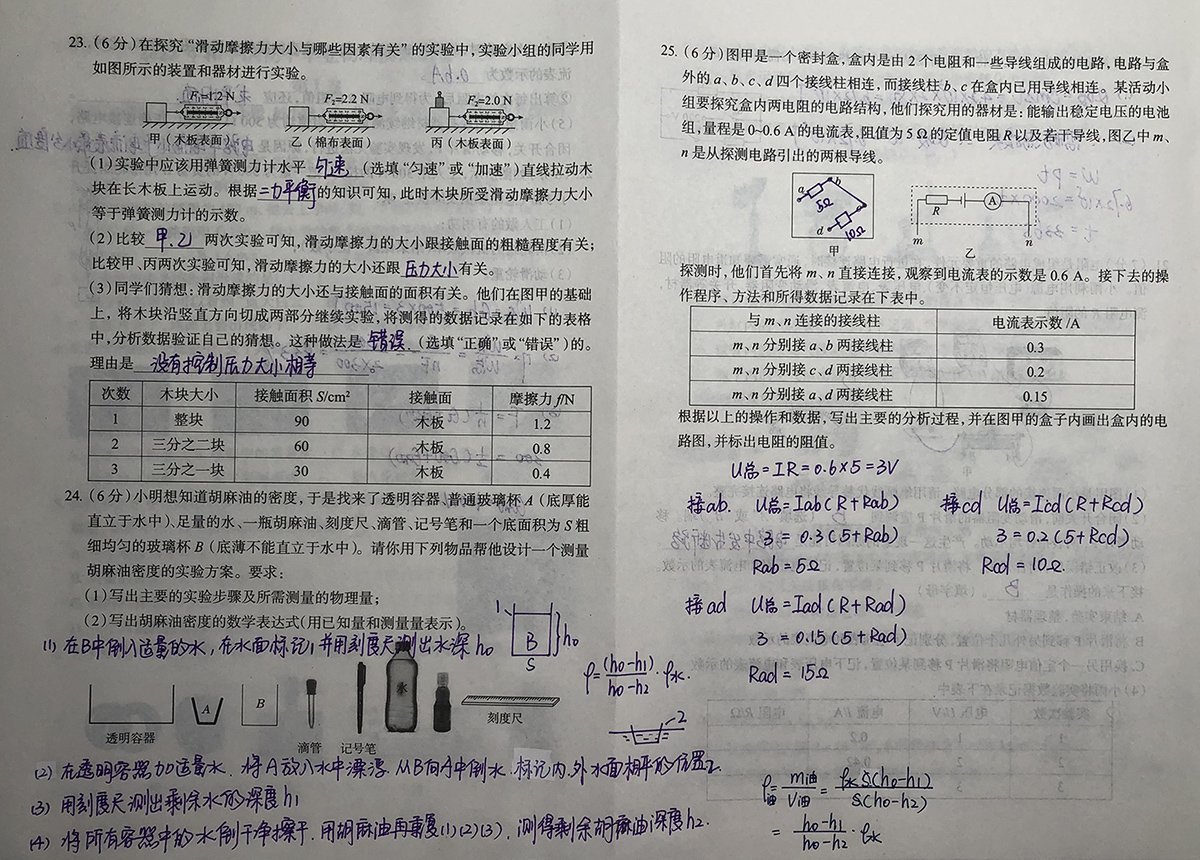 23.(6分)在探究“滑动摩擦力大小与哪些因素有关”的实验中,实验小组的同学用
如图所示的装置和器材进行实验。
F₁=1.2 N
F₂=2.2 N
F₃=2.0 N
甲(木板表面)
乙(棉布表面)
丙(木板表面)
(1)实验中应该用弹簧测力计水平 匀速 (选填“匀速”或“加速”)直线拉动木
块在长木板上运动。根据 二力平衡 的知识可知,此时木块所受滑动摩擦力大小
等于弹簧测力计的示数。
(2)比较 甲.乙 两次实验可知,滑动摩擦力的大小跟接触面的粗糙程度有关;
比较甲、丙两次实验可知,滑动摩擦力的大小还跟 压力大小 有关。
(3)同学们猜想:滑动摩擦力的大小还与接触面的面积有关。他们在图甲的基础
上,将木块沿竖直方向切成两部分继续实验,将测得的数据记录在如下的表格
中,分析数据验证自己的猜想。这种做法是 错误. (选填“正确”或“错误”)的。
理由是 没有控制压力大小相等
次数 木块大小 接触面积 S/cm² 接触面 摩擦力 f/N
1 整块 90 木板 1.2
2 三分之二块 60 木板 0.8
3 三分之一块 30 木板 0.4
24.(6分)小明想知道胡麻油的密度,于是找来了透明容器、普通玻璃杯 A(底厚能
直立于水中)、足量的水、一瓶胡麻油、刻度尺、滴管、记号笔和一个底面积为 S 粗
细均匀的玻璃杯 B(底薄不能直立于水中)。请你用下列物品帮他设计一个测量
胡麻油密度的实验方案。要求:
(1)写出主要的实验步骤及所需测量的物理量;
(2)写出胡麻油密度的数学表达式(用已知量和测量量表示)。
(1) 在B中倒入适量的水,在水面标记1并用刻度尺测出水深h₀
1
B
S
h₀
ρ=(h₀-h₁)/(h₀-h₂)·ρ水.
A
B
水
透明容器
滴管
记号笔
刻度尺
2
(2) 在透明容器加适量水.将A放入水中漂浮.从B向A中倒水.标记内、外水面相平的位置2.
(3) 用刻度尺测出剩余水的深度h₁
(4) 将所有容器中的水倒干净擦干.用胡麻油再重复(1)(2)(3),测得剩余胡麻油深度h₂.
25.(6分)图甲是一个密封盒,盒内是由 2 个电阻和一些导线组成的电路,电路与盒
外的 a、b、c、d 四个接线柱相连,而接线柱 b、c 在盒内已用导线相连。某活动小
组要探究盒内两电阻的电路结构,他们探究用的器材是:能输出稳定电压的电池
组,量程是 0~0.6 A 的电流表,阻值为 5 Ω 的定值电阻 R 以及若干导线,图乙中 m、
n 是从探测电路引出的两根导线。
a
b
5Ω
d
10Ω
甲
R
A
m
n
乙
探测时,他们首先将 m、n 直接连接,观察到电流表的示数是 0.6 A。接下去的操
作程序、方法和所得数据记录在下表中。
与 m、n 连接的接线柱 电流表示数 /A
m、n 分别接 a、b 两接线柱 0.3
m、n 分别接 c、d 两接线柱 0.2
m、n 分别接 a、d 两接线柱 0.15
根据以上的操作和数据,写出主要的分析过程,并在图甲的盒子内画出盒内的电
路图,并标出电阻的阻值。
U总=IR=0.6×5=3V
接ab. U总=Iab(R+Rab)
3=0.3(5+Rab)
Rab=5Ω
接cd U总=Icd(R+Rcd)
3=0.2(5+Rcd)
Rcd=10Ω.
接ad U总=Iad(R+Rad)
3=0.15(5+Rad)
Rad=15Ω
ρ油=m油/V油=ρ水S(h₀-h₁)/S(h₀-h₂)
=(h₀-h₁)/(h₀-h₂)·ρ水